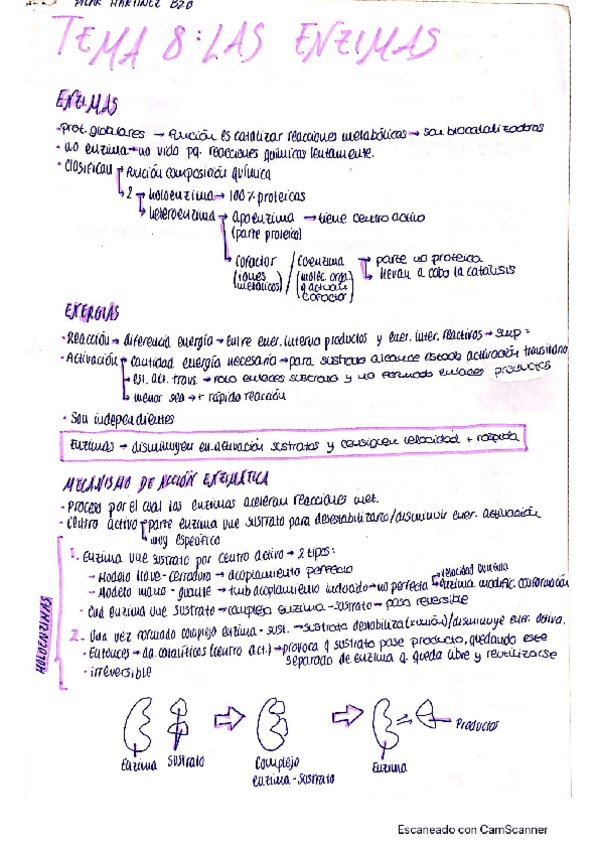 PILAR MARTINEZ B2B
TEMA 8: LAS ENZIMAS
ENZIMAS
· Prot. globulares → función es catalizar reacciones metabólicas → son biocatalizadoras
· no enzima → no vida pq. reacciones químicas lentamente.
· Clasifican → función composición química
↳ 2 → holoenzima → 100% proteicas
↳ heteroenzima → apoenzima → tiene centro activo
(parte proteica)
↳ cofactor / coenzima → parte no proteica
(iones metálicos) (molec. org. q actúan cofactor) ↳ llevan a cabo la catálisis
ENERGIAS
· Reacción → diferencia energía → entre ener. interna productos y ener. inter. reactivos → smp =
· Activación → cantidad energía necesaria → para sustrato alcance estado activación transitorio
→ est. act. trans. → roto enlaces sustrato y no formado enlaces productos
↳ menor sea → + rápido reacción
· Son independientes
Enzimas → disminuyen en. activación sustratos y consiguen velocidad + rápida
MECANISMO DE ACCIÓN ENZIMÁTICA
· Proceso por el cual las enzimas aceleran reacciones met.
· Centro activo → parte enzima une sustrato para desestabilizarlo/disminuir ener. activación
↳ muy específico
HOLOENZIMAS
1. Enzima une sustrato por centro activo → 2 tipos:
- Modelo llave-cerradura → acoplamiento perfecto
- Modelo mano-guante → tmb acoplamiento inducido → no perfecto → velocidad aumenta
↳ enzima modific. conformación
· Cnd enzima une sustrato → complejo enzima-sustrato → paso reversible
2. Una vez formado complejo enzima-sust. → sustrato desnobiliza /disminuye ener. activa.
· Entonces → aa. catalíticos (centro act.) → provoca q sustrato pase producto, quedando este
separado de enzima q. queda libre y reutilizarse
· irreversible
Enzima sustrato
Complejo
enzima-sustrato
Enzima
Productos
Escaneado con CamScanner